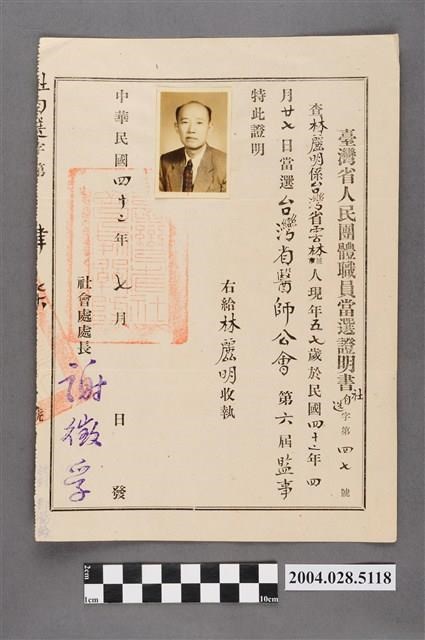 臺灣省人民團體職員當選證明書 社內選字第四七號
查林麗明係台灣省雲林縣人現年五七歲於民國四十二年四
月廿七日當選台灣省醫師公會第六屆監事
特此證明
右給林麗明收執
社會處處長 謝徵孚
中華民國四十二年七月 日發
2cm
1cm
10cm
2004.028.5118